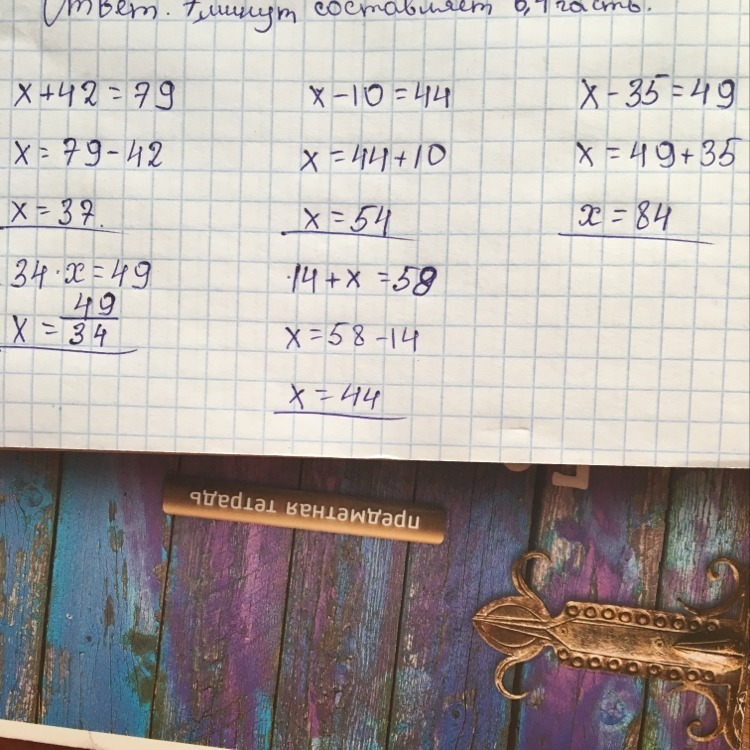 Ответ. 7 минут составляет 0,1 часть.
x + 42 = 79
x = 79 - 42
x = 37.
x - 10 = 44
x = 44 + 10
x = 54
x - 35 = 49
x = 49 + 35
x = 84
34 · x = 49
x = 49/34
14 + x = 58
x = 58 - 14
x = 44
предметная тетрадь